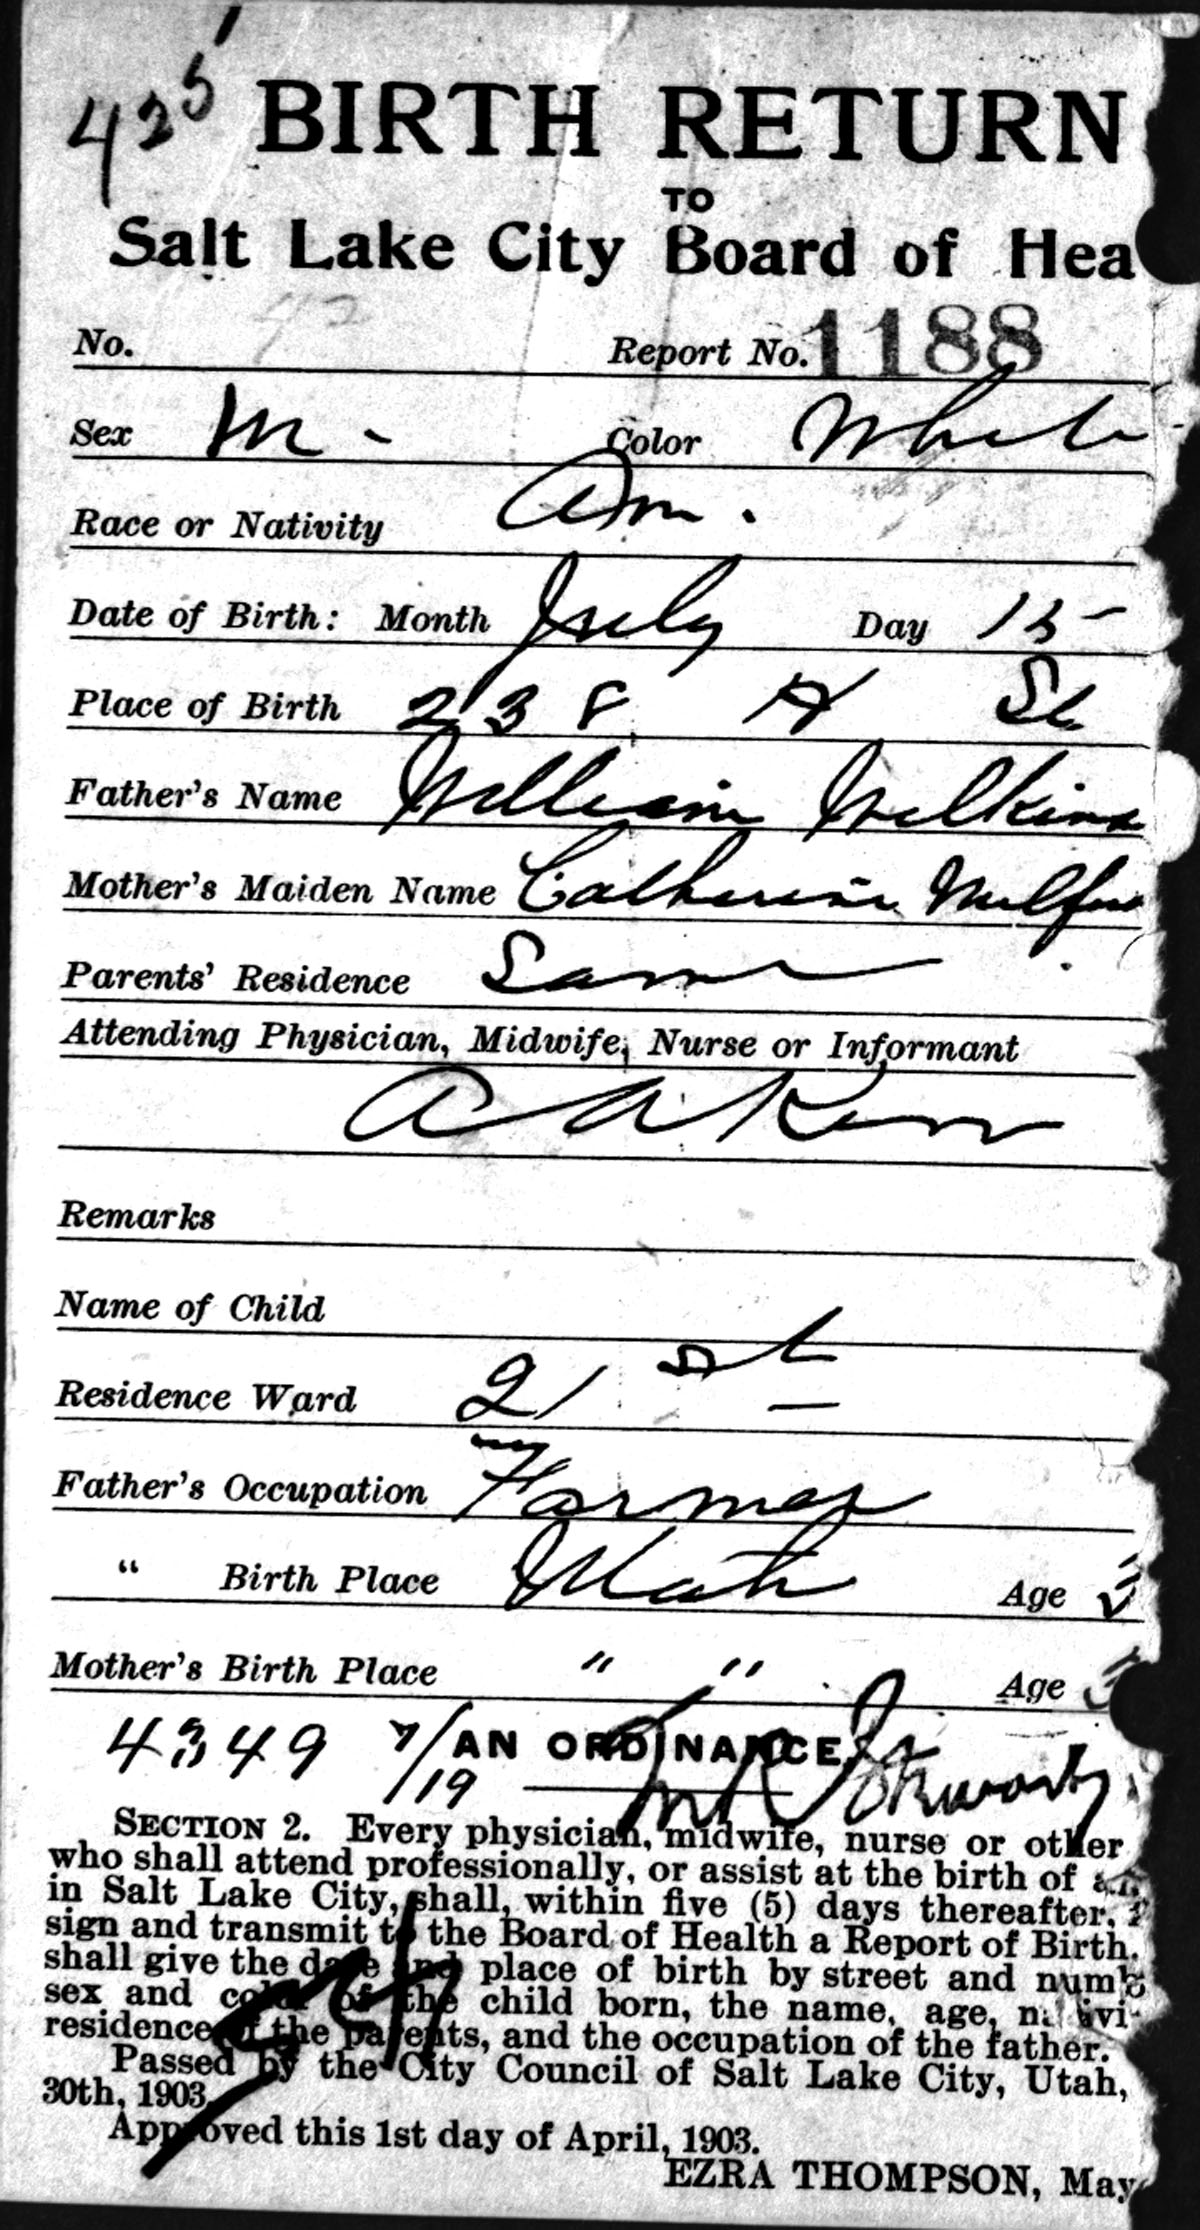 425
BIRTH RETURN
TO
Salt Lake City Board of Hea
No. 42 Report No. 1188
Sex M. Color White
Race or Nativity Am.
Date of Birth: Month July Day 15
Place of Birth 238 A St
Father's Name William Wilkins
Mother's Maiden Name Catherine
Parents' Residence Same
Attending Physician, Midwife, Nurse or Informant
A A Kerr
Remarks
Name of Child
Residence Ward 21st
Father's Occupation Farmer
" Birth Place Utah Age
Mother's Birth Place " " Age
4349 7/19 AN ORDINANCE
SECTION 2. Every physician, midwife, nurse or other
who shall attend professionally, or assist at the birth of
in Salt Lake City, shall, within five (5) days thereafter,
sign and transmit to the Board of Health a Report of Birth.
shall give the date and place of birth by street and numb
sex and color of the child born, the name, age, nativi-
residence of the parents, and the occupation of the father.
Passed by the City Council of Salt Lake City, Utah,
30th, 1903.
Approved this 1st day of April, 1903.
EZRA THOMPSON, May